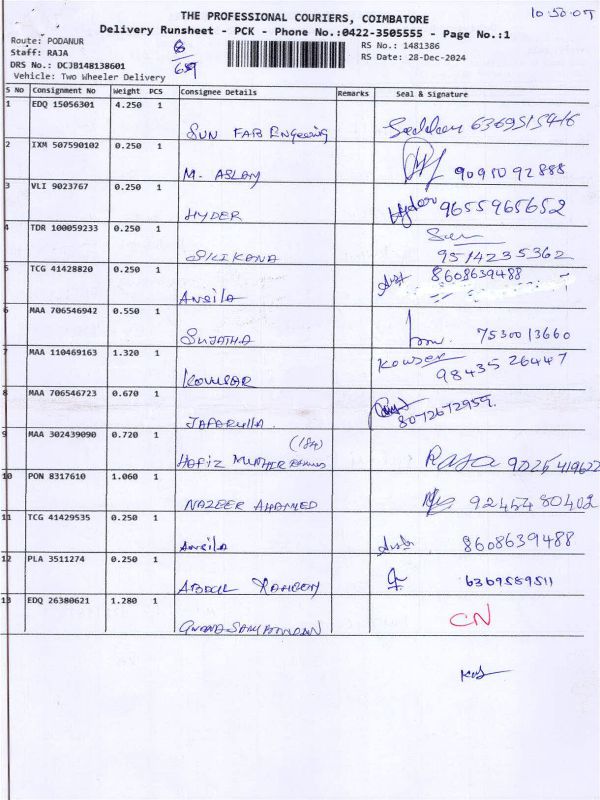 THE PROFESSIONAL COURIERS, COIMBATORE
10-50-05
Delivery Runsheet - PCK - Phone No.:0422-3505555 - Page No.:1
Route: PODANUR
RS No.: 1481386
Staff: RAJA
RS Date: 28-Dec-2024
DRS No.: DCJB148138601
Vehicle: Two Wheeler Delivery
S No Consignment No Weight PCS Consignee Details Remarks Seal & Signature
1 EDQ 15056301 4.250 1
SUN FAB Engeering 6369515416
2 IXM 507590102 0.250 1
M. ASLAM 9091092888
3 VLI 9023767 0.250 1
HYDER Hyder 9655965652
4 TDR 100059233 0.250 1
9514235362
5 TCG 41428820 0.250 1 8608639488
Ansila
6 MAA 706546942 0.550 1
SUJATHA 7530013660
7 MAA 110469163 1.320 1 Kowser
KOWSAR 98435 26447
8 MAA 706546723 0.670 1
JAFARULLA. 8072672959.
9 MAA 302439090 0.720 1
(184)
HAFIZ Raja 9025419622
10 PON 8317610 1.060 1
NAZEER AHAMMED 9245480402
11 TCG 41429535 0.250 1
Ansila 8608639488
12 PLA 3511274 0.250 1
ABDUL RAHEEM 6369589511
13 EDQ 26380621 1.280 1
CN